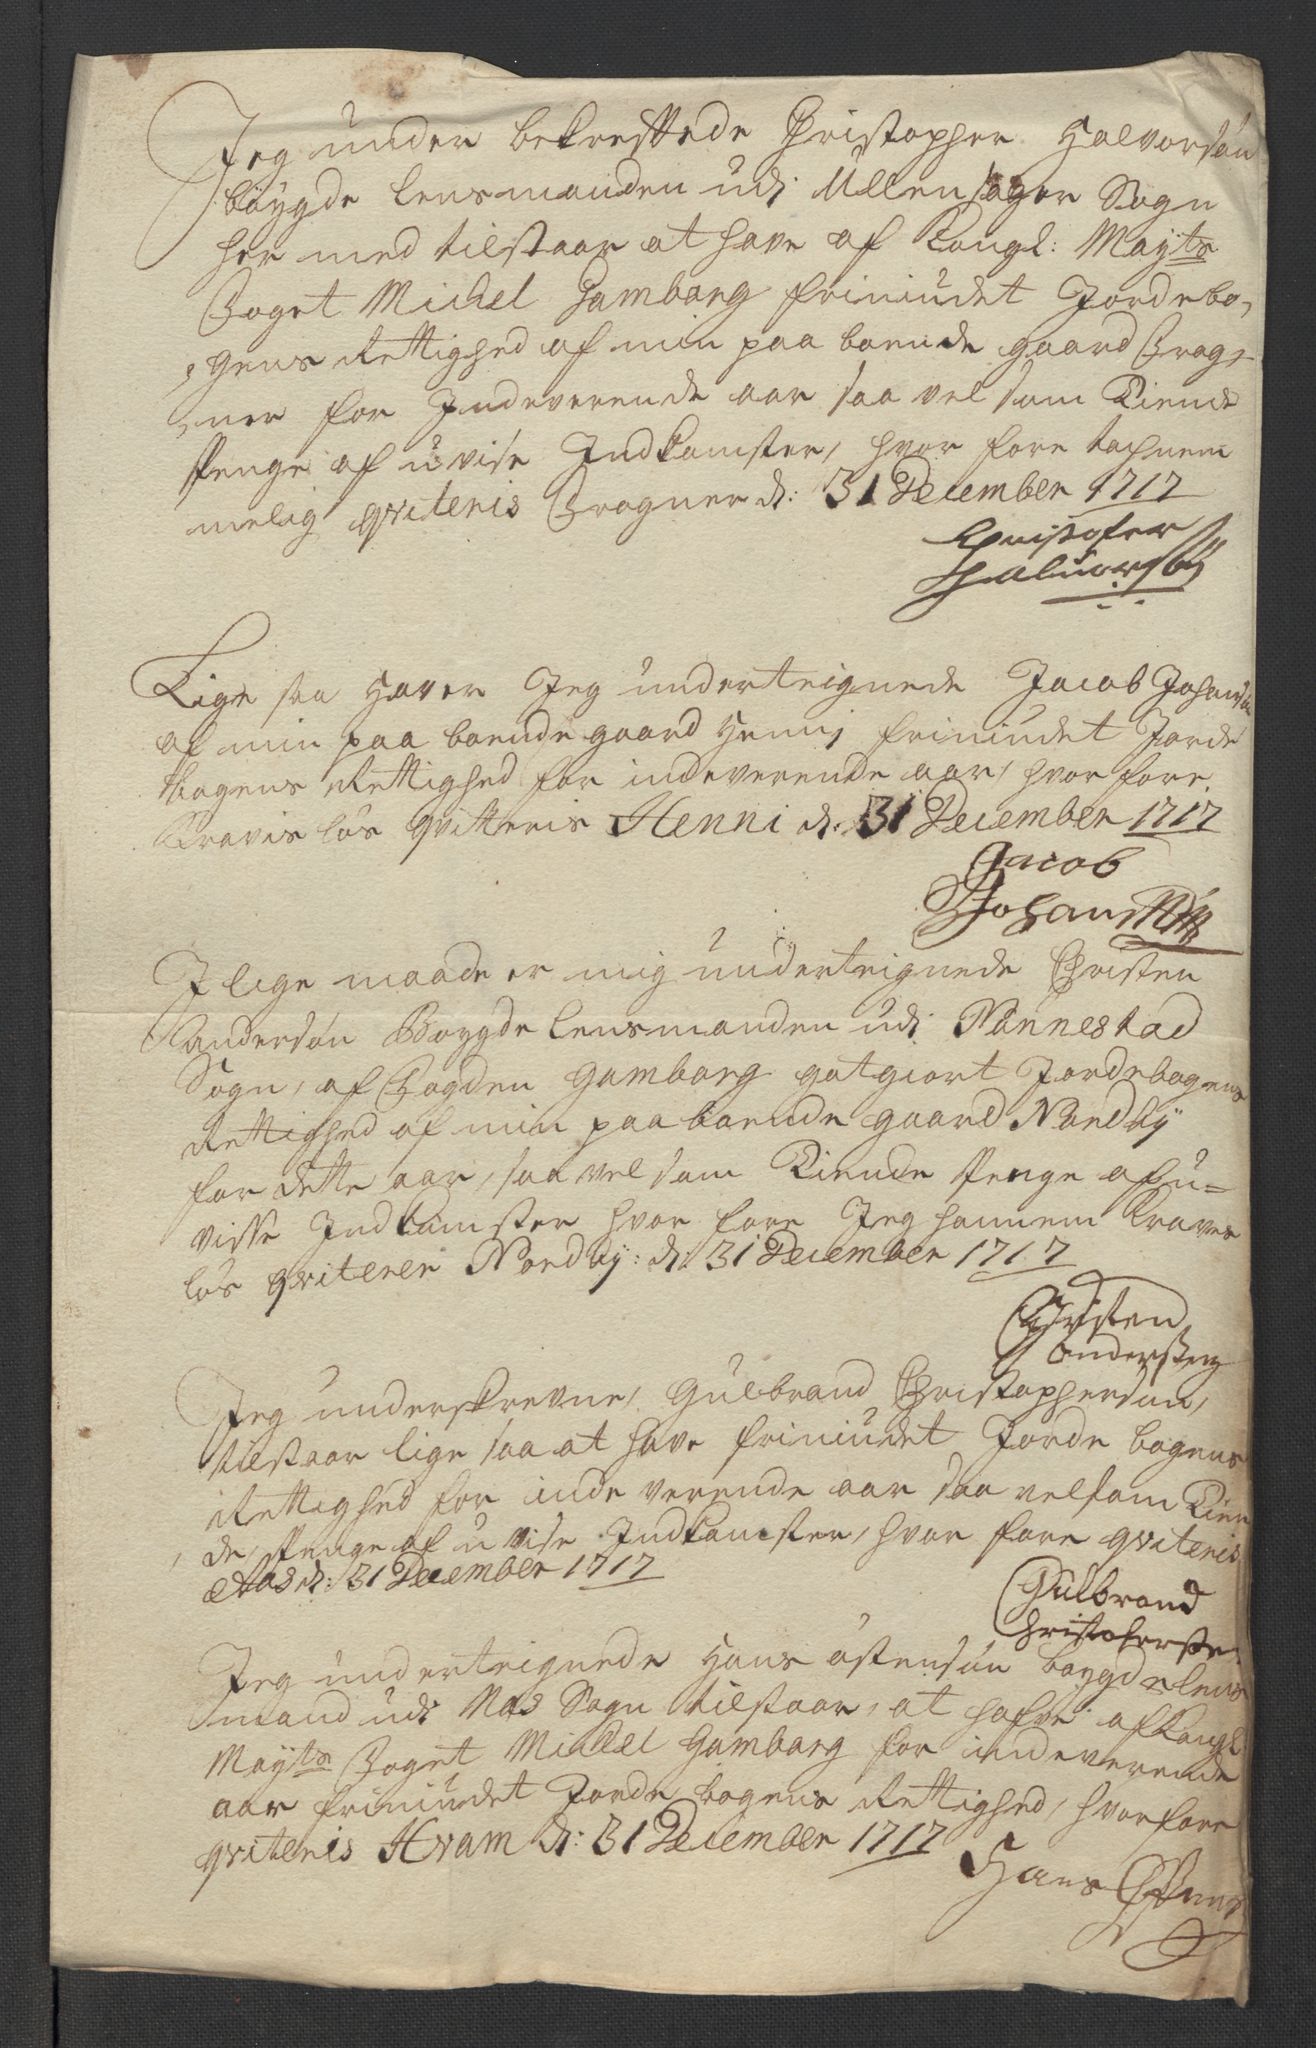 Jeg under bekreftede Christopher Halvorsøn
bøygde Lensmanden udi Ullensager Sogn
her med tilstaar at have af Kongl: Mayts
Foget Michel Gamborg friniudet Jordebo,
gens Rettighed af min paa boende gaard Frog,
ner for Indeverende aar saa vel som Tiende
Penge af uvise Indkomster, hvor fore tachnem
melig qviteris Frogner d: 31 December 1717
Christofer
Haluorsøn
Lige saa Haver Jeg underteignede Jacob Johansøn
af min paa boende gaard Henni friniudet Jorde
bogens Rettighed for indeverende aar, hvor fore
Kravis løs qvitteris Henni d: 31 December 1717
Jacob
Johans
I lige maade er mig underteignede Christen
Andersøn Bøygde Lensmanden udi Nannestad
Sogn, af Fogden Gamborg gotgiort Jordebogens
Rettighed af min paa boende gaard Nordby
for dette aar, saa vel som Tiende Penge af u=
visse Indkomster hvor fore Jeg hannem Kraves
løs qviterer Nordby: d: 31 December 1717
Christen
Andersen
Jeg underskrevne, Gulbrand Christophersøn,
tilstaar lige saa at have friniudet Jorde bogens
Rettighed for inde verende aar saa velsom Tien
de, Penge af uvise Indkomster, hvor fore qviteris
Aas d: 31 December 1717
Gulbrand
Christofersen
Jeg underteignede Hans Østensøn bøygde lens
mand udi Næs Sogn tilstaar, at hafve af Kongl
Mayts Foget Michel Gamborg for indeverende
aar friniudet Jorde bogens Rettighed, hvorfore
qviteris Hvam d: 31 December 1717
Hans